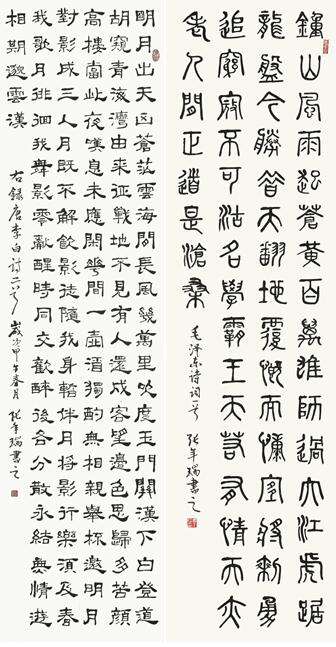 鍾山風雨起蒼黃百萬雄師過大江虎踞
龍盤今勝昔天翻地覆慨而慷宜將剩勇
追窮寇不可沽名學霸王天若有情天亦
老人間正道是滄桑
毛泽东诗词一首 張年瑞書之
明月出天山蒼茫雲海間長風幾萬里吹度玉門關漢下白登道
胡窺青海灣由來征戰地不見有人還戍客望邊色思歸多苦顏
高樓當此夜嘆息未應閒花間一壺酒獨酌無相親舉杯邀明月
對影成三人月既不解飲影徒隨我身暫伴月將影行樂須及春
我歌月徘徊我舞影零亂醒時同交歡醉後各分散永結無情遊
相期邈雲漢
右錄唐李白诗二首 歲次甲午春月 張年瑞書之